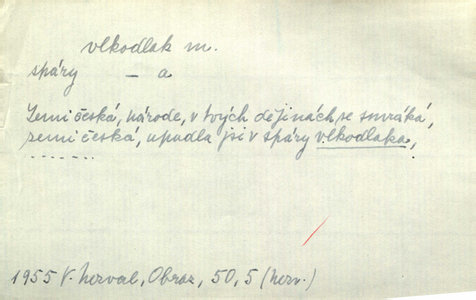 vlkodlak m.
spáry — a
Zemi česká, národe, v tvých dějinách se smráká,
zemi česká, upadla jsi v spáry vlkodlaka,
.......
1955 V. Nerval, Obraz, 50, 5 (nerv.)